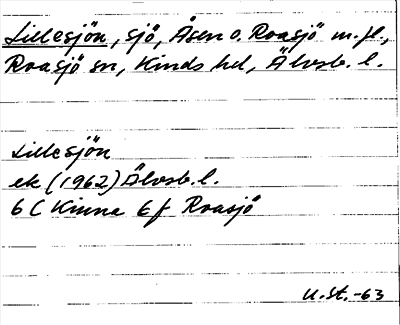 Lillesjön, sjö, Åsen o. Roasjö m.fl.,
Roasjö sn, Kinds hd, Älvsb. l.
Lillesjön
ek (1962) Älvsb. l.
6 C Kinna 6 f Roasjö
U.St. -63